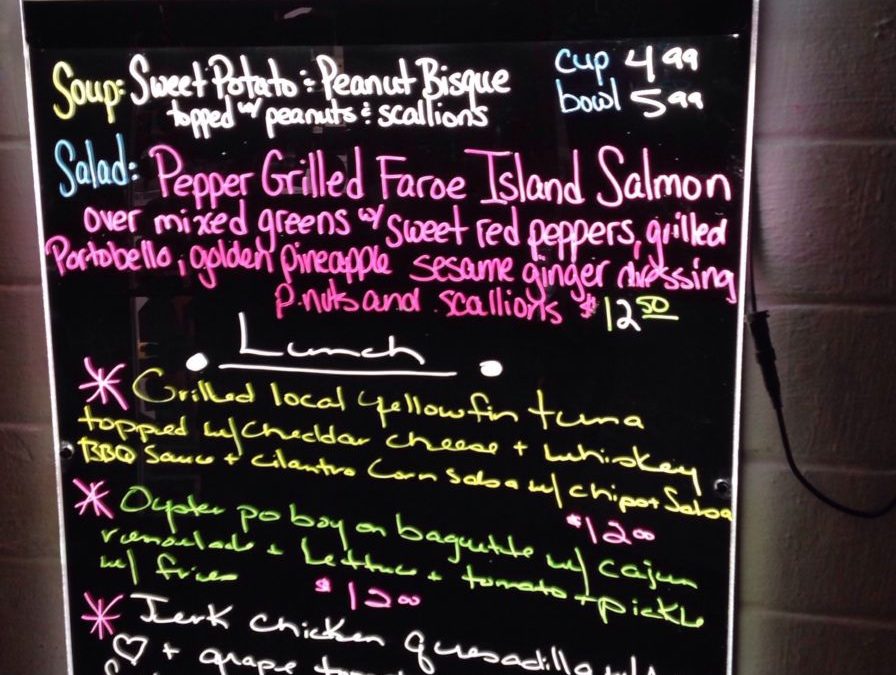 Soup: Sweet Potato & Peanut Bisque cup 4.99
topped w/ peanuts & scallions bowl 5.99
Salad: Pepper Grilled Faroe Island Salmon
over mixed greens w/ sweet red peppers, grilled
Portobello, golden pineapple sesame ginger dressing
p.nuts and scallions $12.50
Lunch
* Grilled local yellowfin tuna
topped w/ cheddar cheese + whiskey
BBQ Sauce + cilantro Corn salsa w/ chipot Salsa
$12.00
* Oyster po boy on baguette w/ cajun
remoulade + lettuce + tomato + pickle
w/ fries $12.00
* Jerk chicken quesadilla
♡ + grape